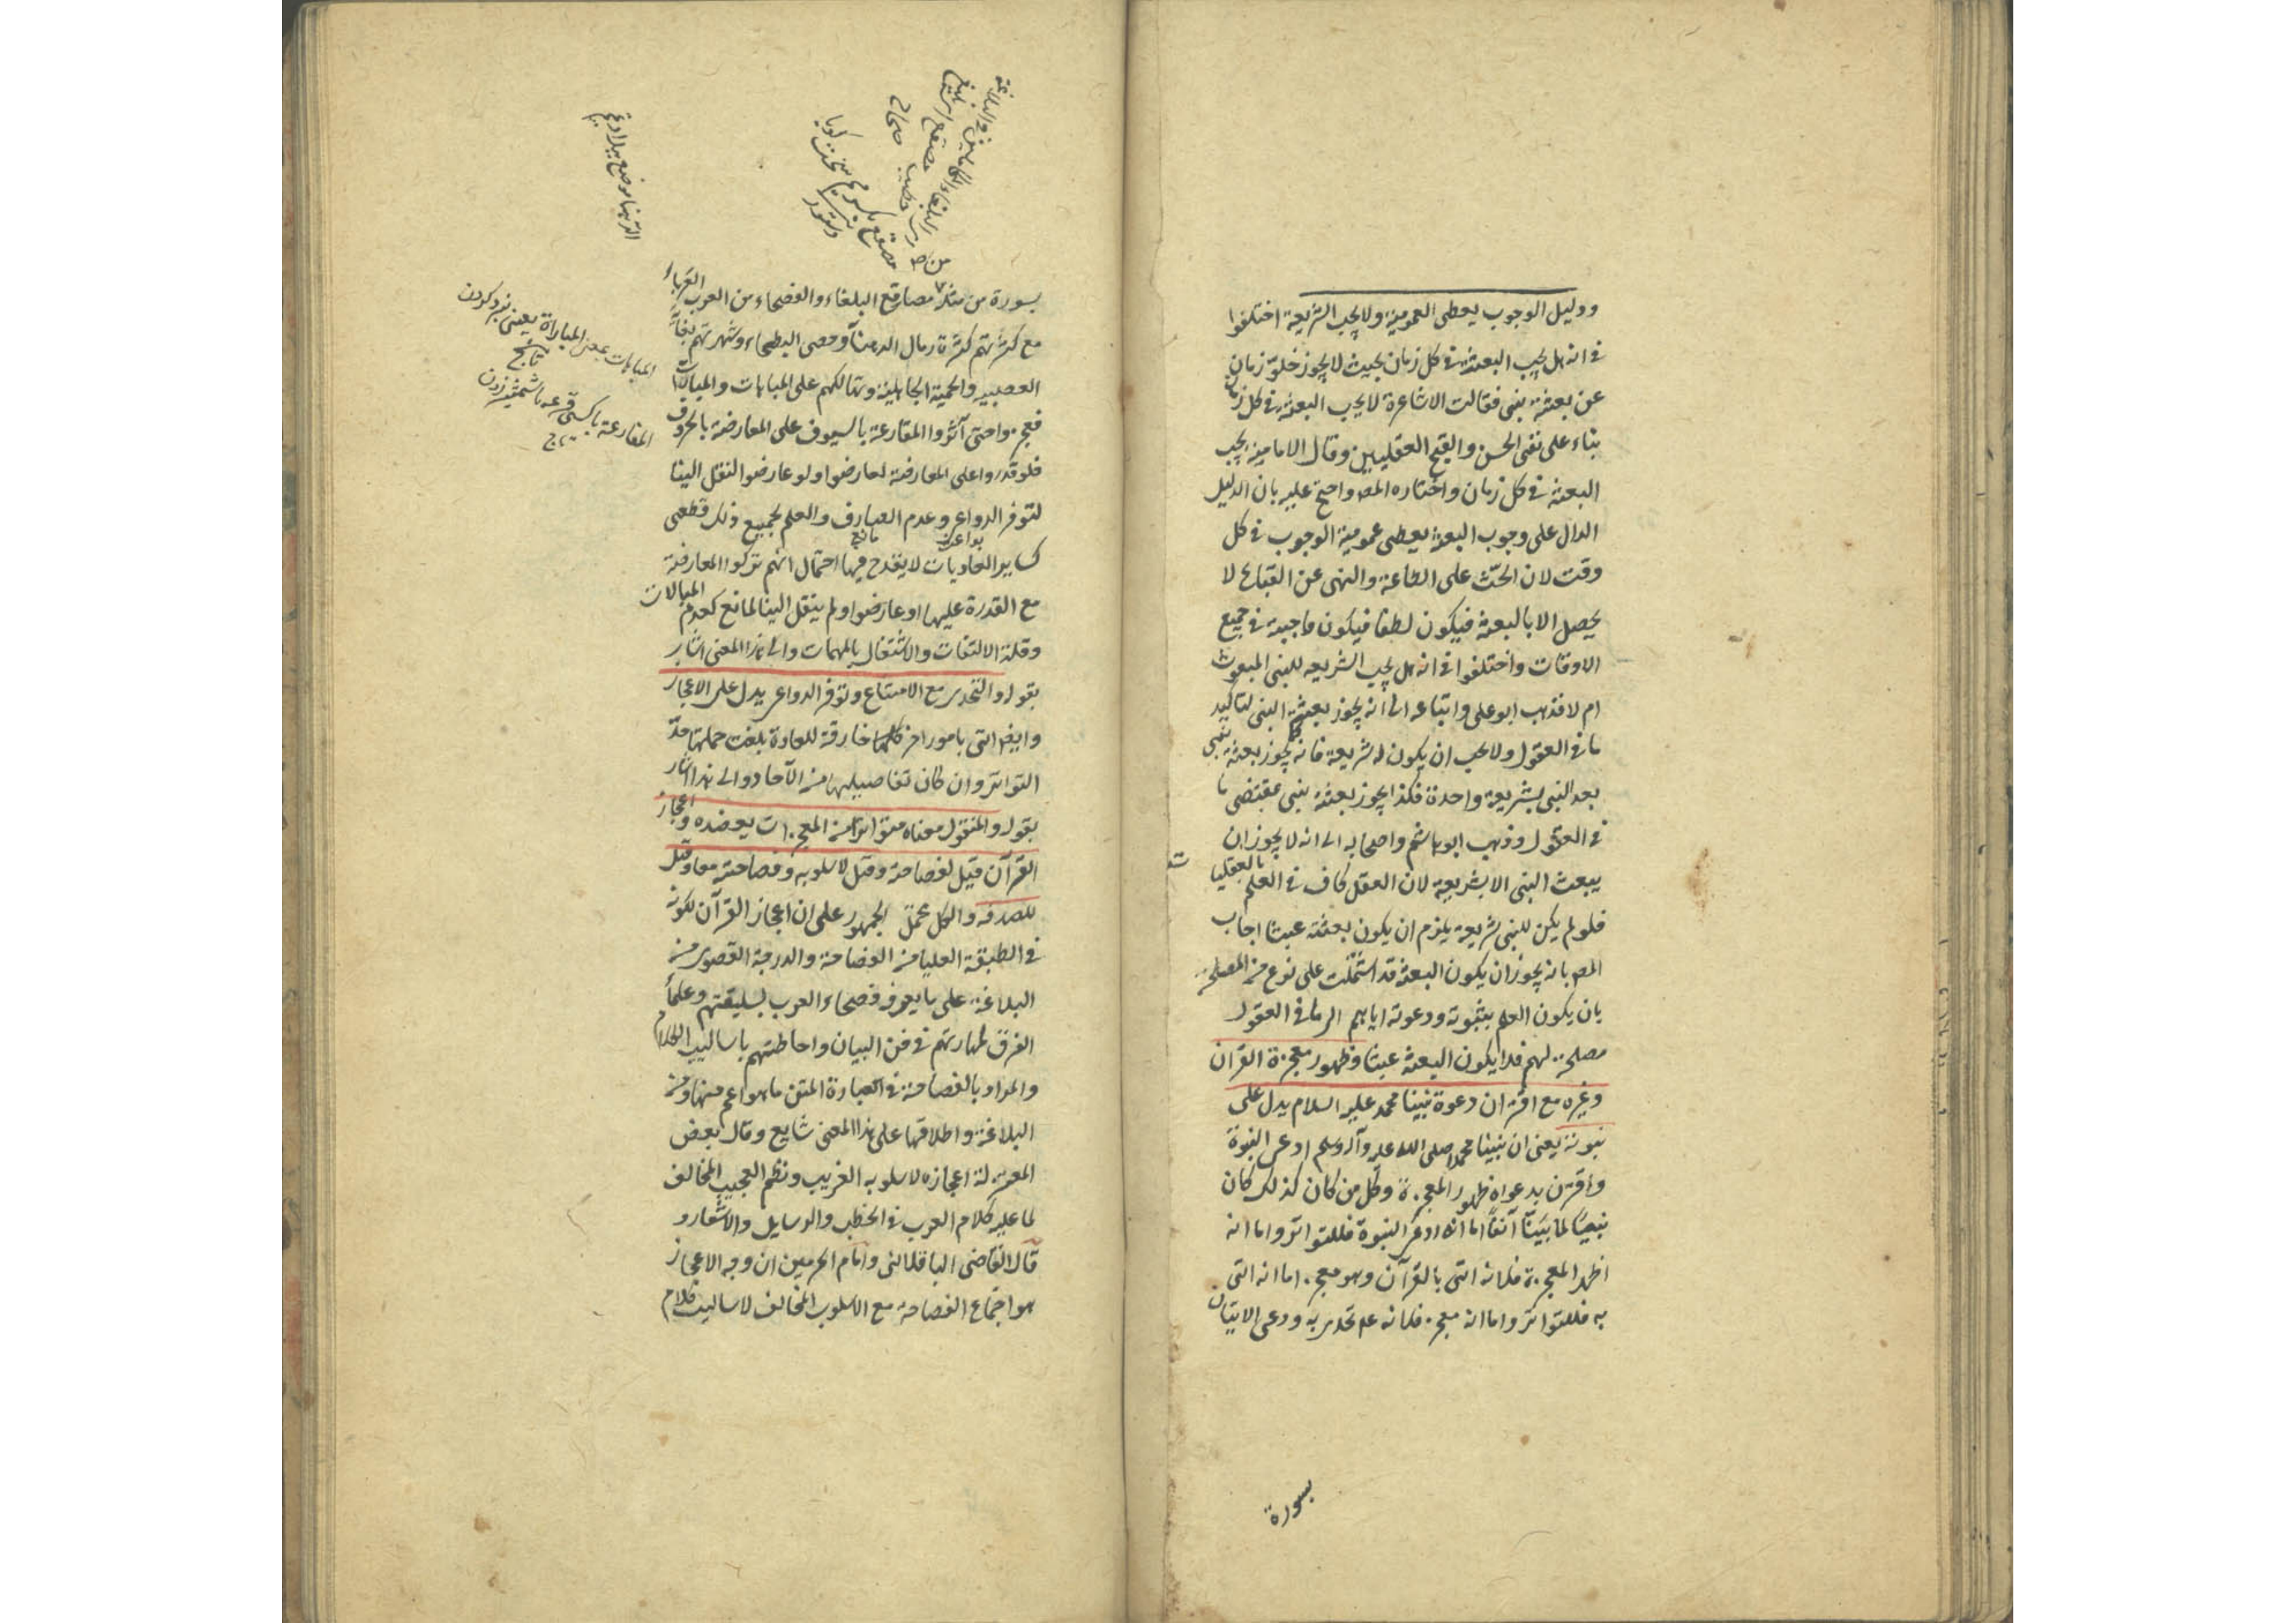 ودليل الوجوب يعطى العمومية ولا يجب الشريعة اختلفوا
فى انه هل يجب البعثة فى كل زمان بحيث لا يجوز خلو زمان
عن بعثة نبى فقالت الاشاعرة لا يجب البعثة فى كل زمان
بناء على نفى الحسن والقبح العقليين وقال الامامية يجب
البعثة فى كل زمان واختاره المص واحتج عليه بان الدليل
الدال على وجوب البعثة يعطى عمومية الوجوب فى كل
وقت لان الحث على الطاعة والنهى عن القبايح لا
يحصل الا بالبعثة فيكون لطفا فيكون واجبة فى جميع
الاوقات واختلفوا فى انه هل يجب الشريعه للنبى المبعوث
ام لا فذهب ابو على واتباعه الى انه يجوز بعثة النبى لتاكيد
ما فى العقول ولا يجب ان يكون له شريعة فانه كما يجوز بعثة نبى
بعد النبى بشريعة واحدة فكذا يجوز بعثة نبى بمقتضى ما
فى العقول وذهب ابو هاشم واصحابه الى انه لا يجوز ان
يبعث النبى الا بشريعة لان العقل كاف فى العلم بالعقليا
ت
فلو لم يكن للنبى شريعة يلزم ان يكون بعثته عبثا اجاب
المص بانه يجوز ان يكون البعثة قد اشتملت على نوع من المصلحة
بان يكون العلم بنبوته ودعوته اياهم الى ما فى العقول
مصلحة لهم فلا يكون البعثة عبثا وظهور معجزة القران
وغيره مع اقتران دعوة نبينا محمد عليه السلام يدل على
نبوته يعنى ان نبينا محمدا صلى الله عليه وآله وسلم ادعى النبوة
واقترن بدعواه ظهور المعجزة وكل من كان كذلك كان
نبيا لما بينا آنفا اما انه ادعى النبوة فللتواتر واما انه
اظهر المعجزة فلانه اتى بالقرآن وهو معجز اما انه اتى
به فللتواتر واما انه معجز فلانه عم تحدى به ودعى الاتيان
بسورة
بسورة من مثله مصاقع البلغاء والفصحاء من العرب العرباء
مع كثرتهم كثرة رمال الدهناء وحصى البطحاء وشهرتهم بغاية
العصبيه والحمية الجاهلية وتهالكهم على المباهات والمبارات
فعجزوا حتى آثروا المقارعة بالسيوف على المعارضة بالحروف
فلو قدروا على المعارضة لعارضوا ولو عارضوا لنقل الينا
لتوفر الدواعى وعدم الصارف والعلم بجميع ذلك قطعى
بواعث مانع
كساير العاديات لا يقدح فيها احتمال انهم تركوا المعارضة
مع القدرة عليها او عارضوا ولم ينقل الينا لمانع كعدم المبالات
وقلة الالتفات والاشتغال بالمهمات والى هذا المعنى اشار
بقوله والتحدى مع الامتناع وتوفر الدواعى يدل على الاعجاز
وايضا اتى بامور اخر كلها خارقة للعادة بلغت جملتها حد
التواتر وان كان تفاصيلها من الآحاد والى هذا اشار
بقوله والمنقول معناه متواترا من المعجزات يعضده واعجاز
القرآن قيل لفصاحته وقيل لاسلوبه وفصاحته معا وقيل
للصرفة والكل محتمل الجمهور على ان اعجاز القرآن لكونه
فى الطبقة العليا من الفصاحة والدرجة القصوى من
البلاغة على ما يعرفه فصحاء العرب بسليقتهم وعلماء
الفرق لمهارتهم فى فن البيان واحاطتهم باساليب الكلام
والمراد بالفصاحة فى العبارة المتن ما هو اعم منها ومن
البلاغة واطلاقها على هذا المعنى شايع وقال بعض
المعتزلة اعجازه لاسلوبه الغريب ونظمه العجيب المخالف
لما عليه كلام العرب فى الخطب والرسايل والاشعار و
قال القاضى الباقلانى وامام الحرمين ان وجه الاعجاز
هو اجتماع الفصاحة مع الاسلوب المخالف لاساليب كلام
البلغاء الكاملين فى البلاغة
الدهنا موضع ببلاد تميم
المباهات بمعنى المباراة يعنى نبرد كردن
تاج
المقارعة با كسى قرعه با شمشير زدن
تاج